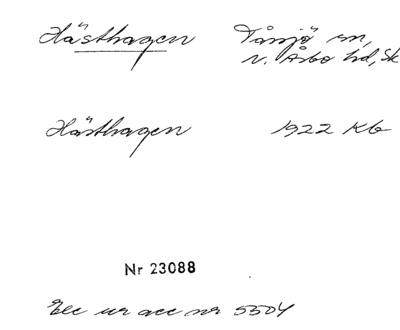 Hästhagen Tåssjö sn,
N. Åsbo hd, Sk
Hästhagen 1922 Kb
Nr 23088
Exc ur acc nr 5504